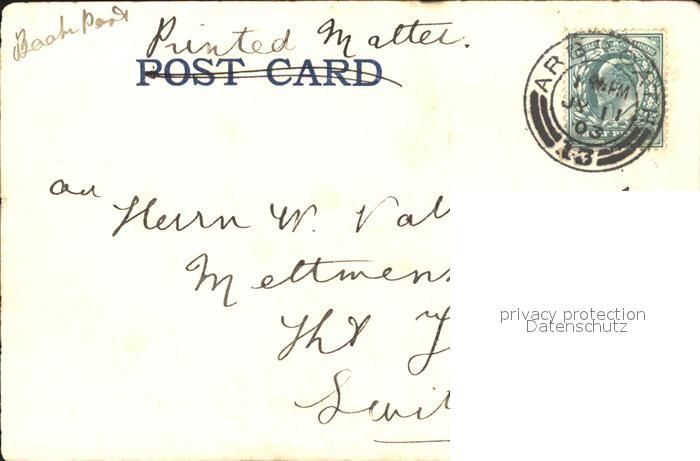 Book Post
Printed Matter.
POST CARD
ARBROATH
PM
JY 11
03
13
an
Herrn W. Val
Mettmens
Kt
Swit
privacy protection
Datenschutz